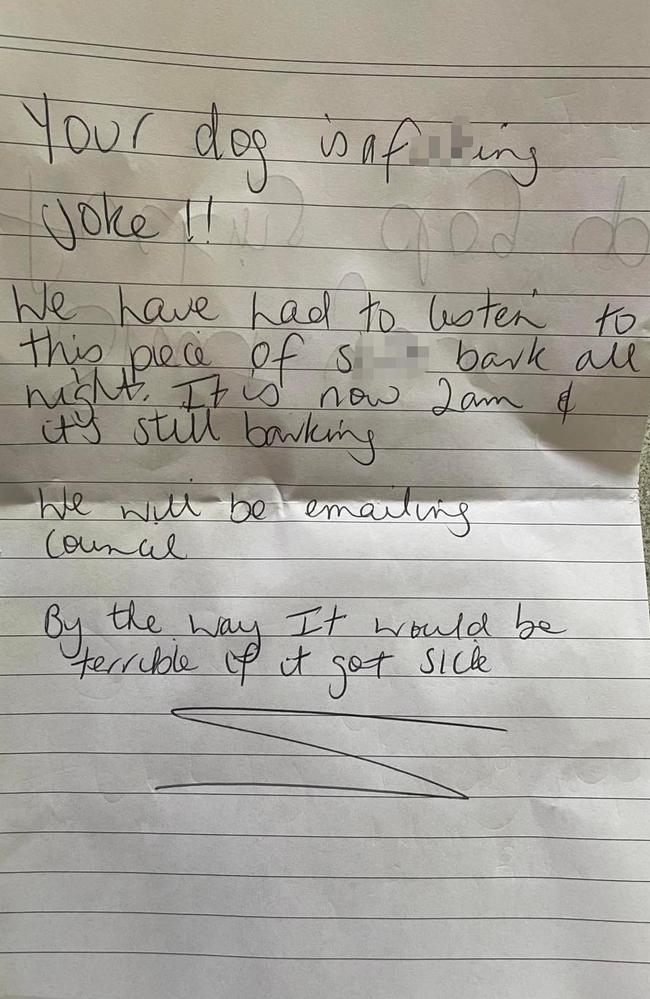 Your dog is a f ing
Joke !!
We have had to listen to
this piece of s bark all
night. It is now 2am &
it's still barking
We will be emailing
Council
By the way It would be
terrible if it got sick